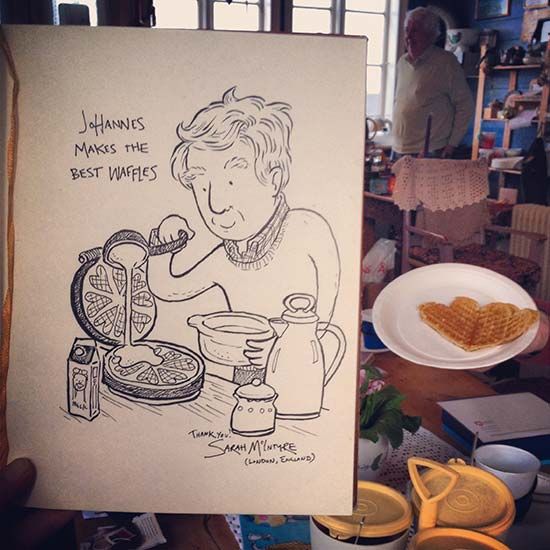 JOHANNES
MAKES THE
BEST WAFFLES
MILK
THANK YOU.
SARAH McINTYRE
(LONDON, ENGLAND)